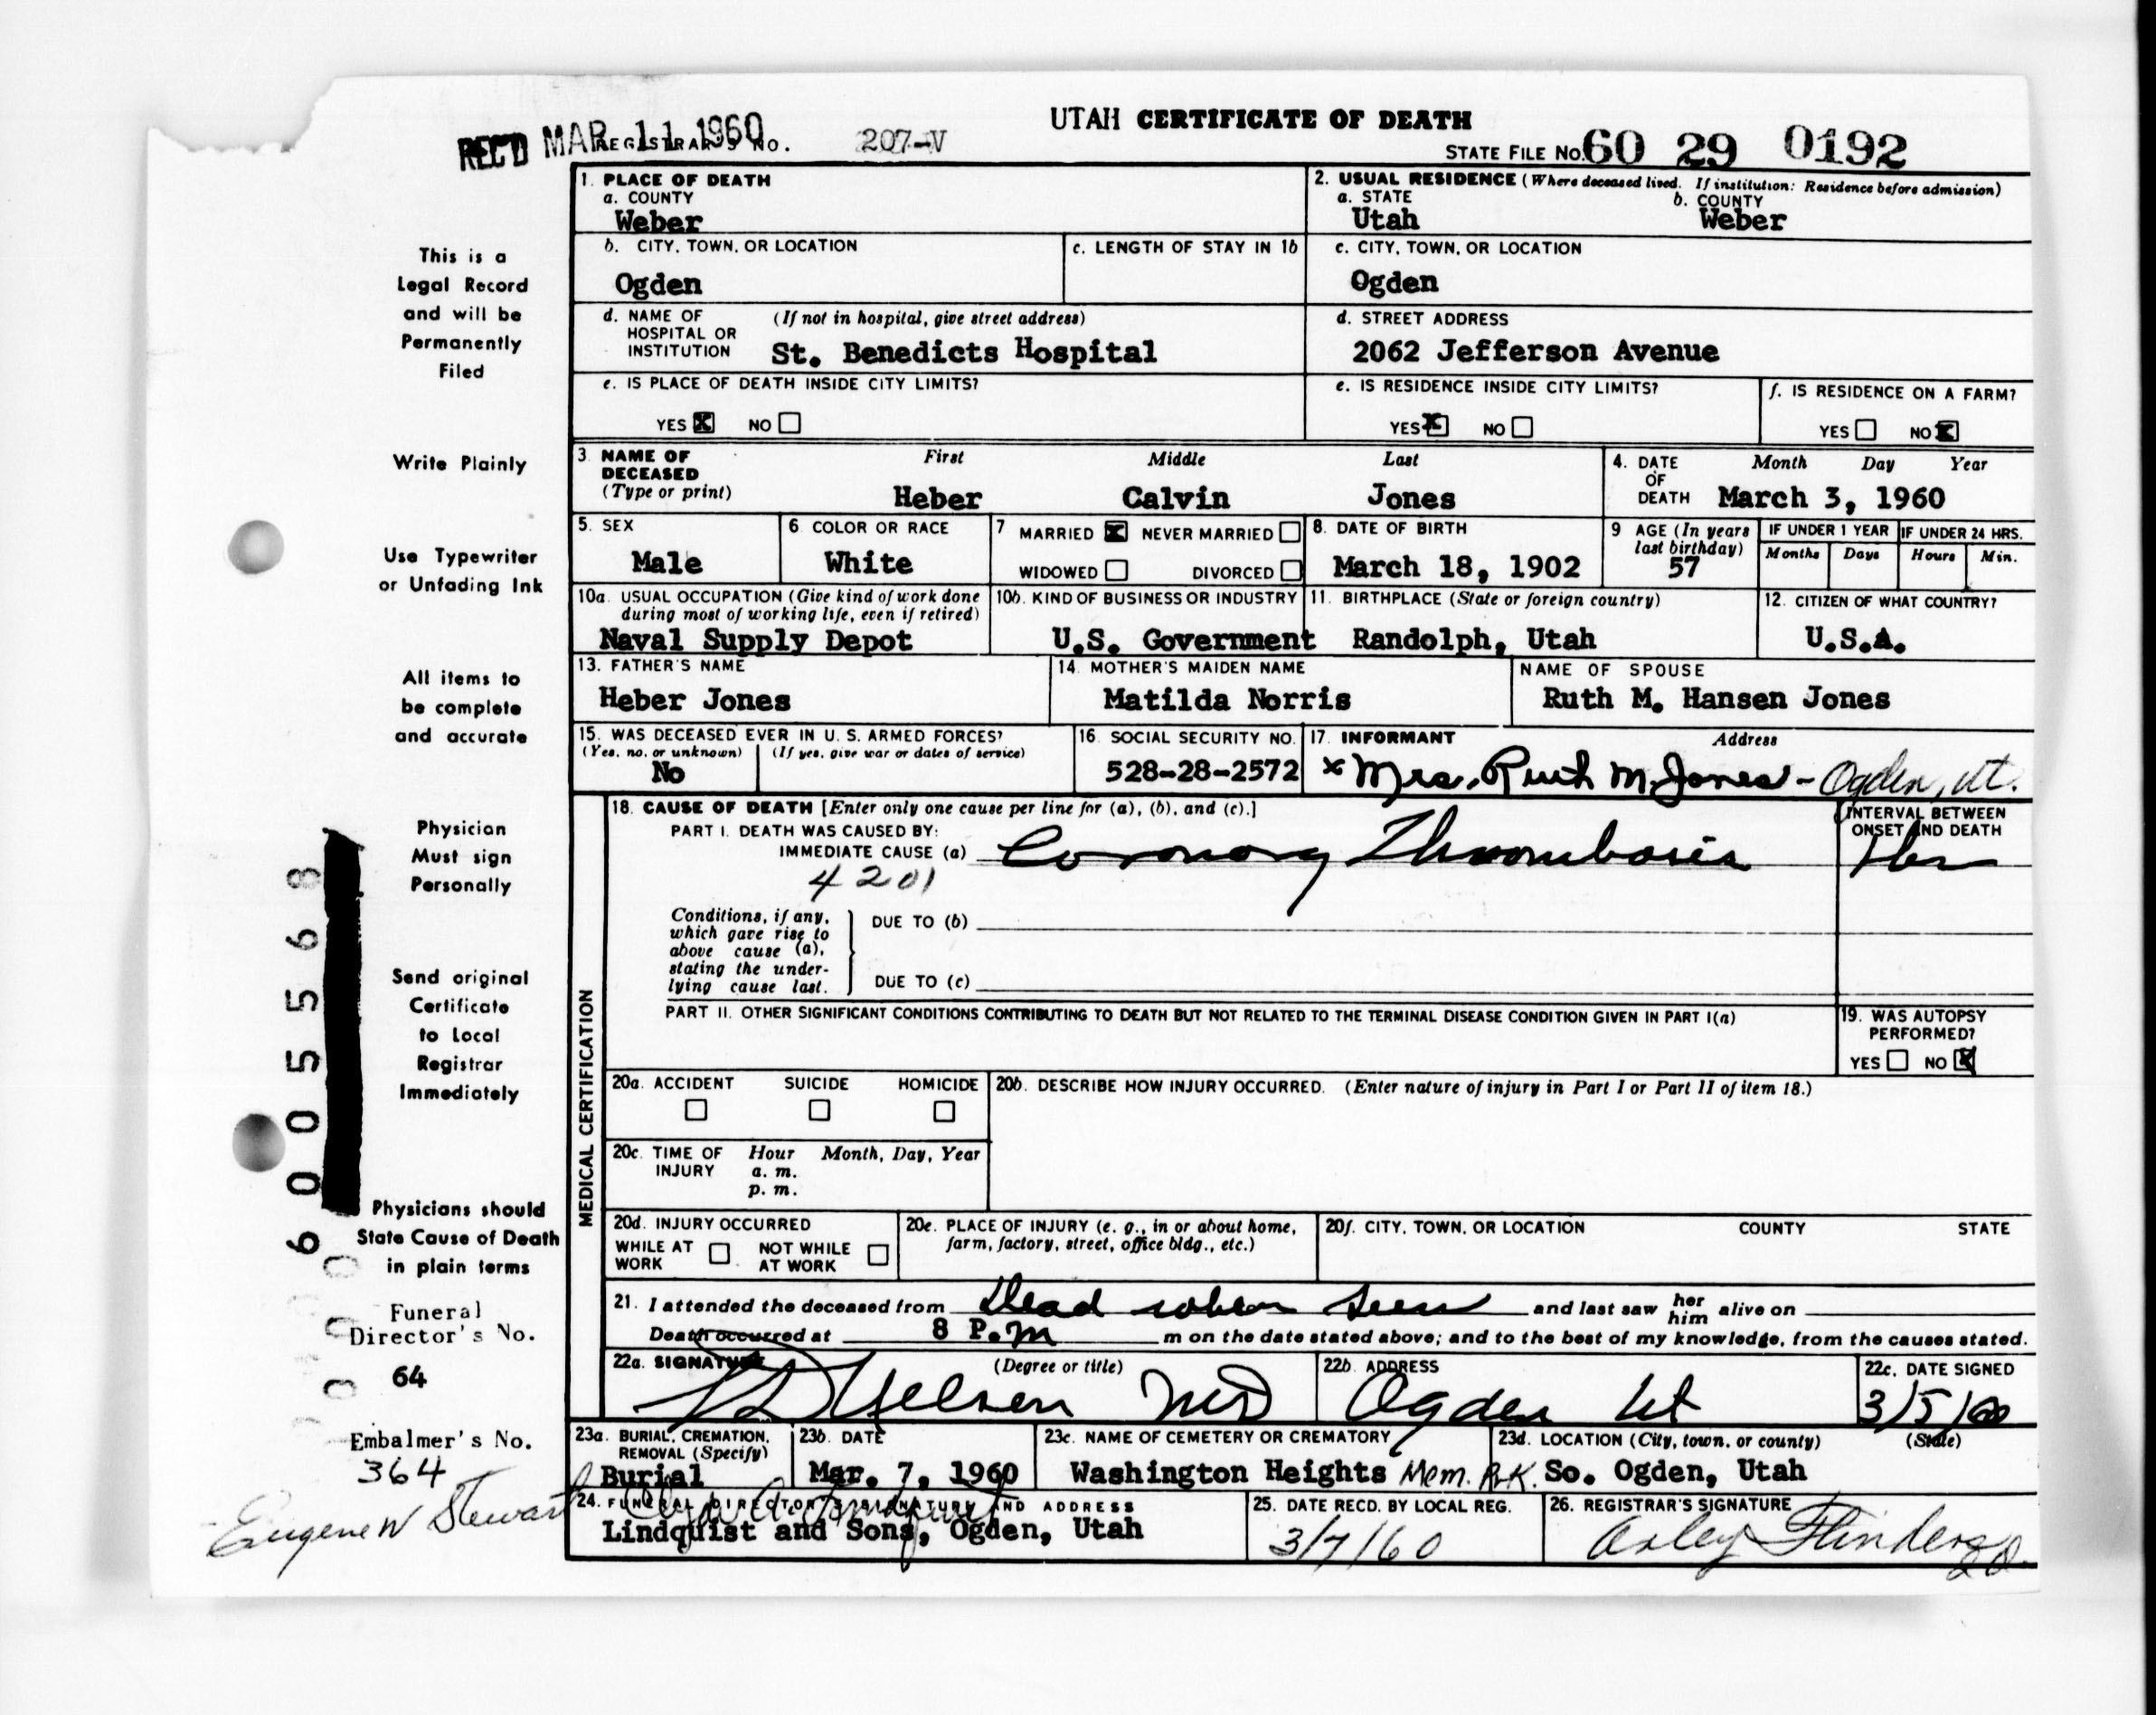 UTAH CERTIFICATE OF DEATH
REC'D MAR 11 1960 REGISTRAR'S NO. 207-V
STATE FILE NO. 60 29 0192
1. PLACE OF DEATH
a. COUNTY
Weber
2. USUAL RESIDENCE (Where deceased lived. If institution: Residence before admission)
a. STATE b. COUNTY
Utah Weber
b. CITY, TOWN, OR LOCATION
Ogden
c. LENGTH OF STAY IN 1b
c. CITY, TOWN, OR LOCATION
Ogden
d. NAME OF HOSPITAL OR INSTITUTION (If not in hospital, give street address)
St. Benedicts Hospital
d. STREET ADDRESS
2062 Jefferson Avenue
e. IS PLACE OF DEATH INSIDE CITY LIMITS?
YES X NO
e. IS RESIDENCE INSIDE CITY LIMITS?
YES X NO
f. IS RESIDENCE ON A FARM?
YES NO X
3. NAME OF DECEASED (Type or print)
First Middle Last
Heber Calvin Jones
4. DATE OF DEATH Month Day Year
March 3, 1960
5. SEX
Male
6. COLOR OR RACE
White
7 MARRIED X NEVER MARRIED
WIDOWED DIVORCED
8. DATE OF BIRTH
March 18, 1902
9 AGE (In years last birthday)
57
IF UNDER 1 YEAR IF UNDER 24 HRS.
Months Days Hours Min.
10a. USUAL OCCUPATION (Give kind of work done during most of working life, even if retired)
Naval Supply Depot
10b. KIND OF BUSINESS OR INDUSTRY
U.S. Government
11. BIRTHPLACE (State or foreign country)
Randolph, Utah
12. CITIZEN OF WHAT COUNTRY?
U.S.A.
13. FATHER'S NAME
Heber Jones
14. MOTHER'S MAIDEN NAME
Matilda Norris
NAME OF SPOUSE
Ruth M. Hansen Jones
15. WAS DECEASED EVER IN U. S. ARMED FORCES?
(Yes, no, or unknown) (If yes, give war or dates of service)
No
16. SOCIAL SECURITY NO.
528-28-2572
17. INFORMANT Address
x Mrs. Ruth M. Jones - Ogden, Ut.
MEDICAL CERTIFICATION
18. CAUSE OF DEATH [Enter only one cause per line for (a), (b), and (c).]
PART I. DEATH WAS CAUSED BY:
IMMEDIATE CAUSE (a) Coronary Thrombosis
4201
INTERVAL BETWEEN ONSET AND DEATH
Conditions, if any, which gave rise to above cause (a), stating the underlying cause last.
DUE TO (b)
DUE TO (c)
PART II. OTHER SIGNIFICANT CONDITIONS CONTRIBUTING TO DEATH BUT NOT RELATED TO THE TERMINAL DISEASE CONDITION GIVEN IN PART I(a)
19. WAS AUTOPSY PERFORMED?
YES NO X
20a. ACCIDENT SUICIDE HOMICIDE
20b. DESCRIBE HOW INJURY OCCURRED. (Enter nature of injury in Part I or Part II of item 18.)
20c. TIME OF INJURY Hour Month, Day, Year
a. m.
p. m.
20d. INJURY OCCURRED
WHILE AT WORK NOT WHILE AT WORK
20e. PLACE OF INJURY (e. g., in or about home, farm, factory, street, office bldg., etc.)
20f. CITY, TOWN, OR LOCATION COUNTY STATE
21. I attended the deceased from Dead when seen and last saw her him alive on
Death occurred at 8 P.M m on the date stated above; and to the best of my knowledge, from the causes stated.
22a. SIGNATURE (Degree or title)
MD
22b. ADDRESS
Ogden Ut
22c. DATE SIGNED
3/5/60
23a. BURIAL, CREMATION, REMOVAL (Specify)
Burial
23b. DATE
Mar. 7, 1960
23c. NAME OF CEMETERY OR CREMATORY
Washington Heights Mem. Prk.
23d. LOCATION (City, town, or county) (State)
So. Ogden, Utah
24. FUNERAL DIRECTOR'S SIGNATURE AND ADDRESS
Lindquist and Sons, Ogden, Utah
25. DATE RECD. BY LOCAL REG.
3/7/60
26. REGISTRAR'S SIGNATURE
Flinders
This is a
Legal Record
and will be
Permanently
Filed
Write Plainly
Use Typewriter
or Unfading Ink
All items to
be complete
and accurate
Physician
Must sign
Personally
Send original
Certificate
to Local
Registrar
Immediately
Physicians should
State Cause of Death
in plain terms
Funeral
Director's No.
64
Embalmer's No.
364
Eugene W Stewart
6005568